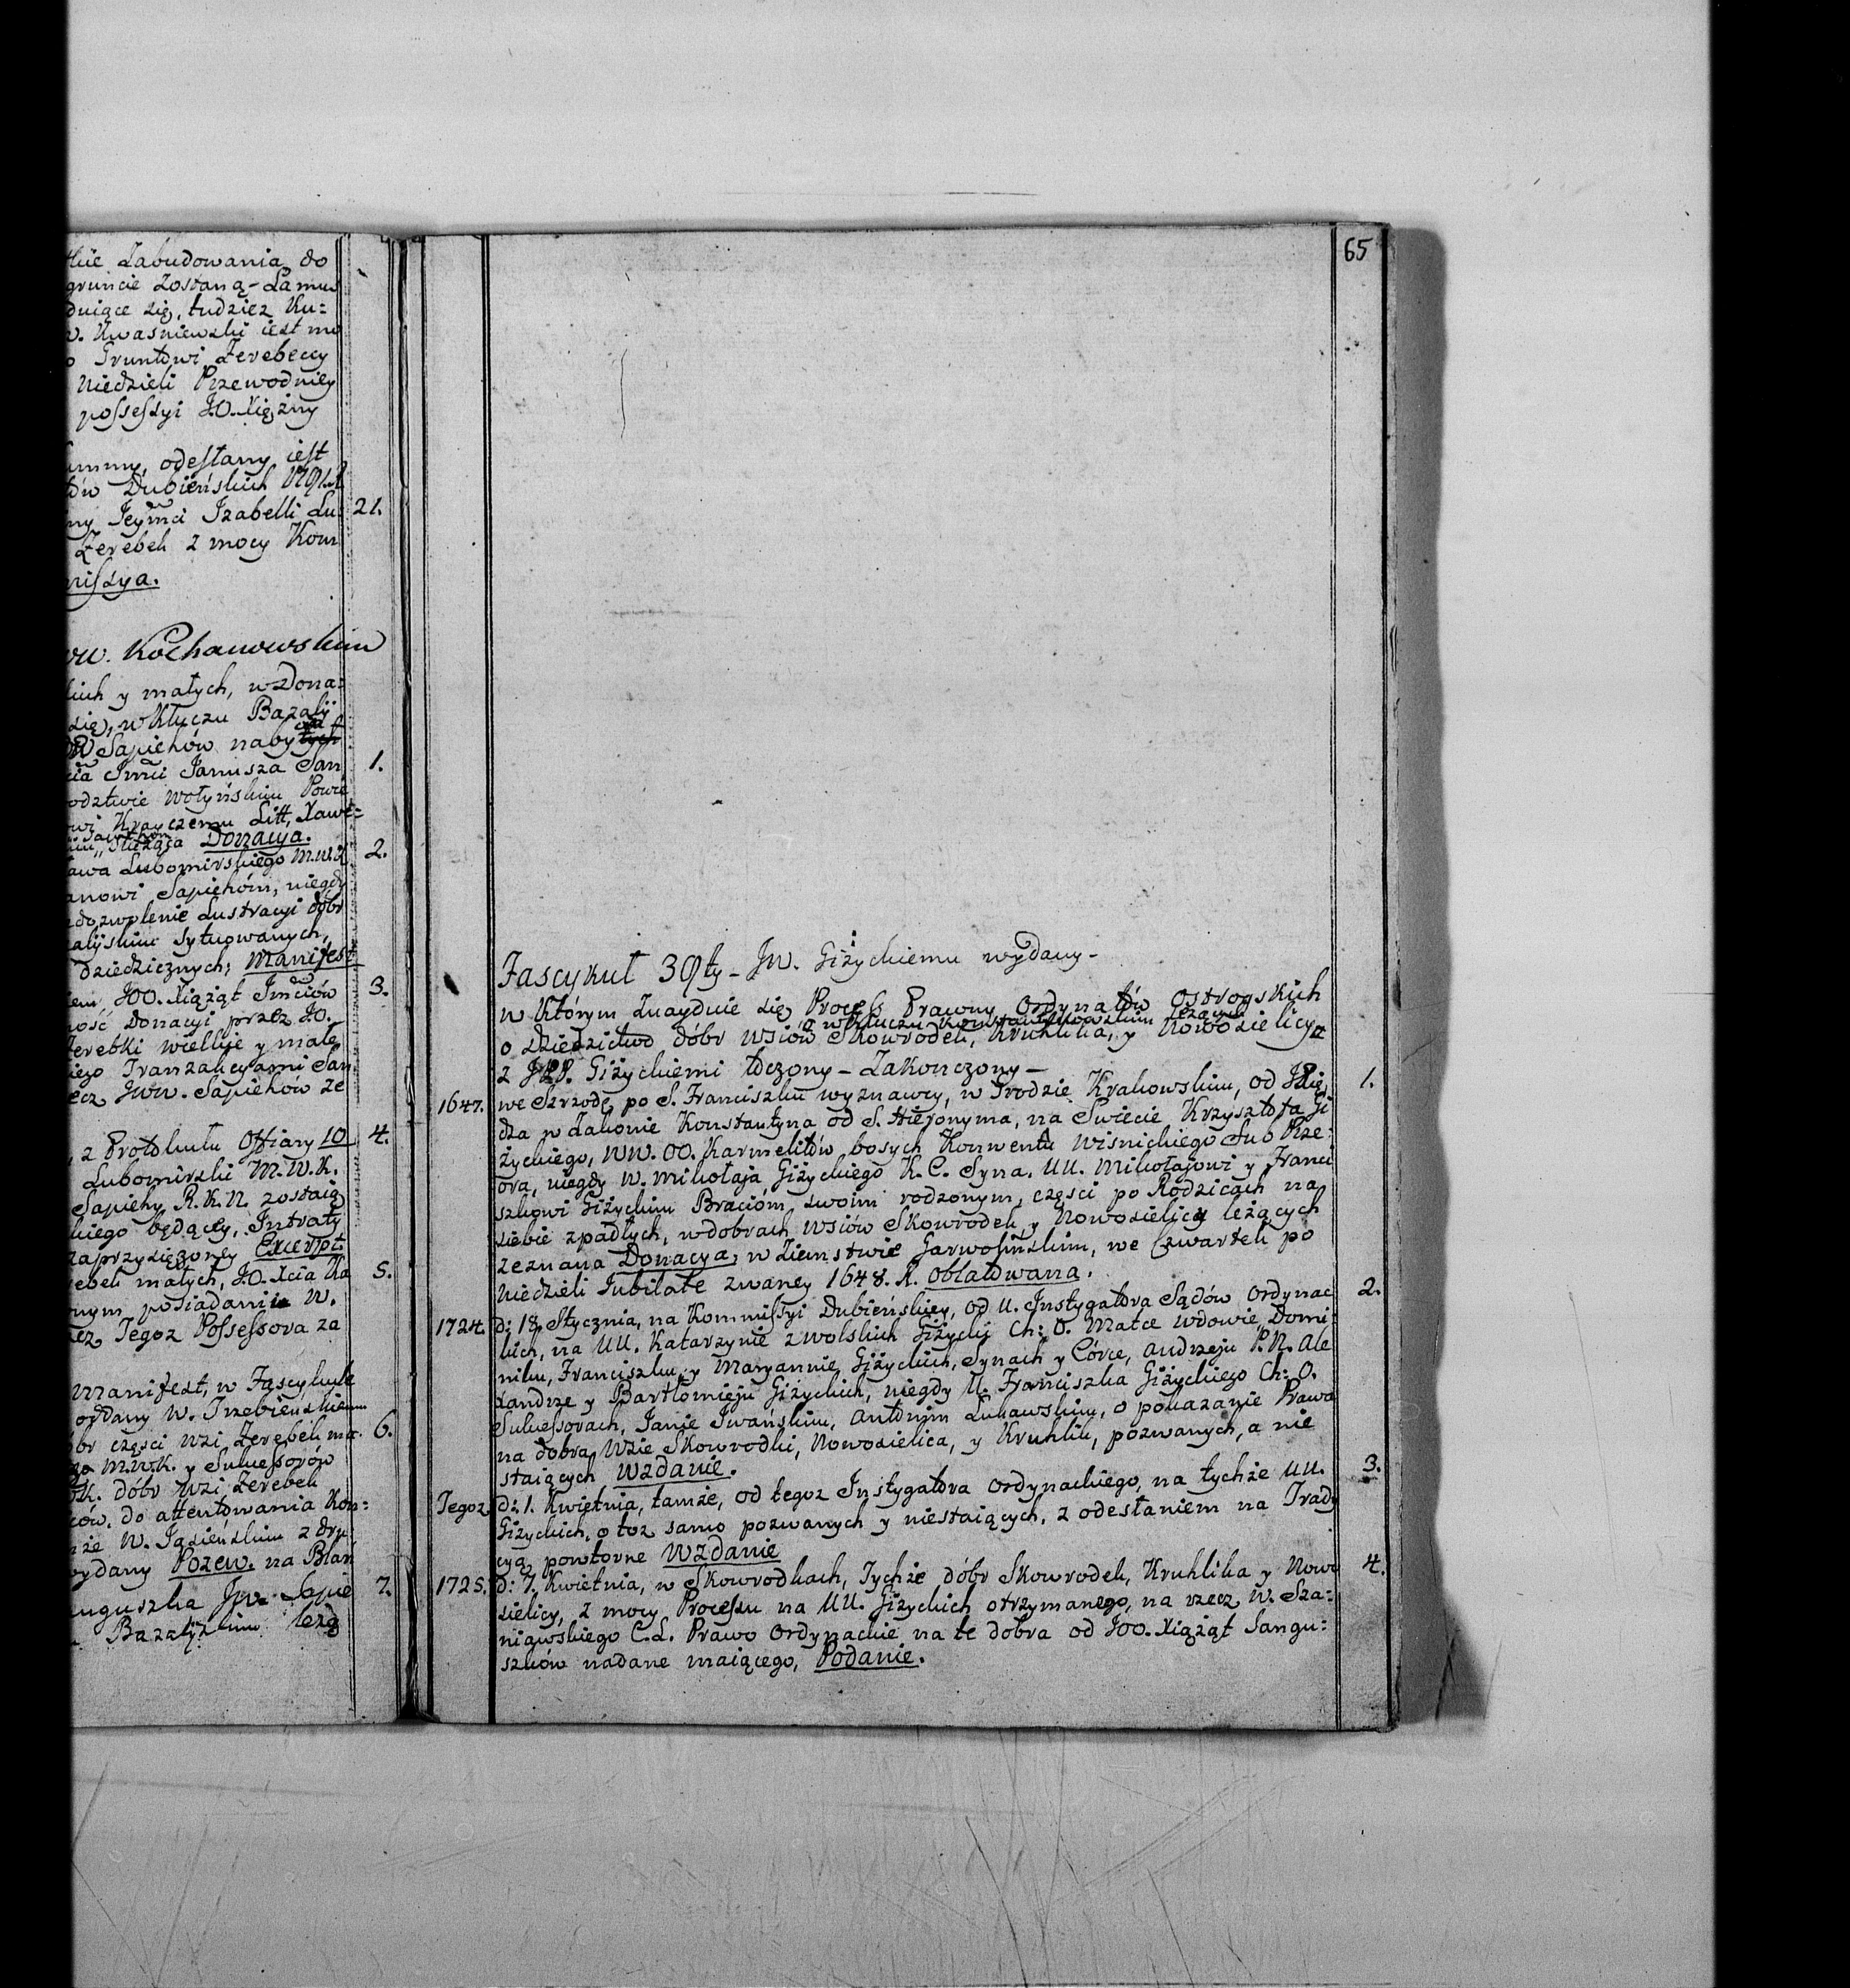 tkie Zabudowania do
gruncie Zostaną – Lamus
duiące się, tudziez Ku=
w. Kwasniewski iest mo
o Gruntowi Zerebeccy
Niedzieli Przewodniey
possessyi J.O. Xiężny
ummy, odesłany iest
tów Dubieńskich
ny Jeymci Izabelli Lu 21.
Zerebek z mocy Kom
missya.
vw. Kochanowskim
kich y małych, w Dona=
się, w Kluczu Bazalÿ
Sapiehów naby
cia Jmci Janusza San 1.
odztwie Wołyńskim Powie
owi Krayczemu Litt, Xawe=
służąca Donacya.
awa Lubomirskiego M.W.K. 2.
anowi Sapiehóm, niegdy
edozwolenie Lustracyi dóbr
alijskim sytuowanych,
dziedzicznych; Manifest
iem JOO. Xiążąt Jmciów 3.
ność Donacyi przez JO.
Zerebki wielkie y małe
iego Tranzakcyami San
ecz JWW. Sapiehów ze
, z Protokułu Offiary 10 4.
Lubomirski M.W.K.
Sapiehy R.K.N. zostaią
kiego będącey, Intraty
zaprzysiężoney Excerpt.
rebek małych, J.O. Xcia Ka 5.
onym posiadaniu W.
ecz Tegoz Possessora za
Manifest, w Fascykule
oddany W. Trzebienskiemu
óbr części Wsi Zerebek ma. 6.
M.W.K. y Sukcessorów
K. dóbr Wsi Zerebek
ców, do attentowania Kom=
nże W. Jasienskim z dru
wydany Pozew. na Blan
anguszka JW. Sapie 7.
Bazalÿskim leżą
65
Fascykuł 39ty – JW. Giżyckiemu wydany –
w Którym Znayduie się Process Prawny Ordynatów Ostrogskich
w Kluczu Konstantynowskim leżących
o dziedzictwo dóbr Wsiów Skowrodek, Kruhlika, y Nowosielicy
z JPP. Giżyckiemi toczony – Zakonczony –
1647. we Szrzodę po S. Franciszku wyznawcy, w Grodzie Krakowskim, od Xię 1.
dza w Zakonie Konstantyna od S. Hieronyma, na Swiecie Krzysztofa Gi
życkiego, WW. OO. Karmelitów bosych Konwentu Wisnickiego Sub Prze=
ora, niegdy W. Mikołaja Giżyckiego K. C. Syna. UU. Mikołajowi y Franci
szkowi Giżyckim Braciom swoim rodzonym, części po Rodzicach na
siebie spadłych, w dobrach Wsiów Skowrodek y Nowosielicy leżących
zeznana Donacya, w Ziemstwie Garwolińskim, we Czwartek po
Niedzieli Jubilate zwaney 1648. R. oblatowana.
1724. d: 18 Stycznia, na Kommissyi Dubieńskiey, od U. Instygatora Sądów Ordynac 2.
kich, na UU. Katarzynie z Wolskich Giżycki Ch: O. Matce Wdowie, Domi=
niku, Franciszku, y Maryannie Giżyckich, Synach y Córce, Andrzeju P.N. Ale
xandrze y Bartłomieju Giżyckich, niegdy U. Franciszka Giżyckiego Ch: O.
Sukcessorach, Janie Iwańskim, Antonim Łukawskim, o pokazanie Prawa
na dobra Wsie Skowrodki, Nowosielica, y Kruhlik, pozwanych, a nie
staiących Wzdanie.
Tegoz d: 1. Kwietnia, tamże, od tegoz Instygatora Ordynackiego, na tychże UU. 3.
Giżyckich, o toz samo pozwanych y niestaiących, z odesłaniem na Trady
cyą, powtorne Wzdanie
1725. d: 7. Kwietnia, w Skowrodkach, Tychże dóbr Skowrodek, Kruhlika y Nowo 4.
sielicy, z mocy Processu na UU. Giżyckich otrzymanego, na rzecz W. Sza=
niawskiego C.L. Prawo Ordynackie na te dobra od JOO. Xiążąt Sangu=
szków nadane maiącego, Podanie.